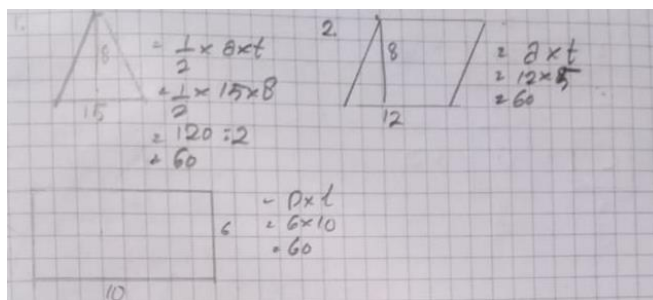 1.
8
15
= 1/2 × a×t
= 1/2 × 15×8
= 120 : 2
= 60
2.
8
12
= a × t
= 12×5
= 60
6
10
= p×l
= 6×10
= 60